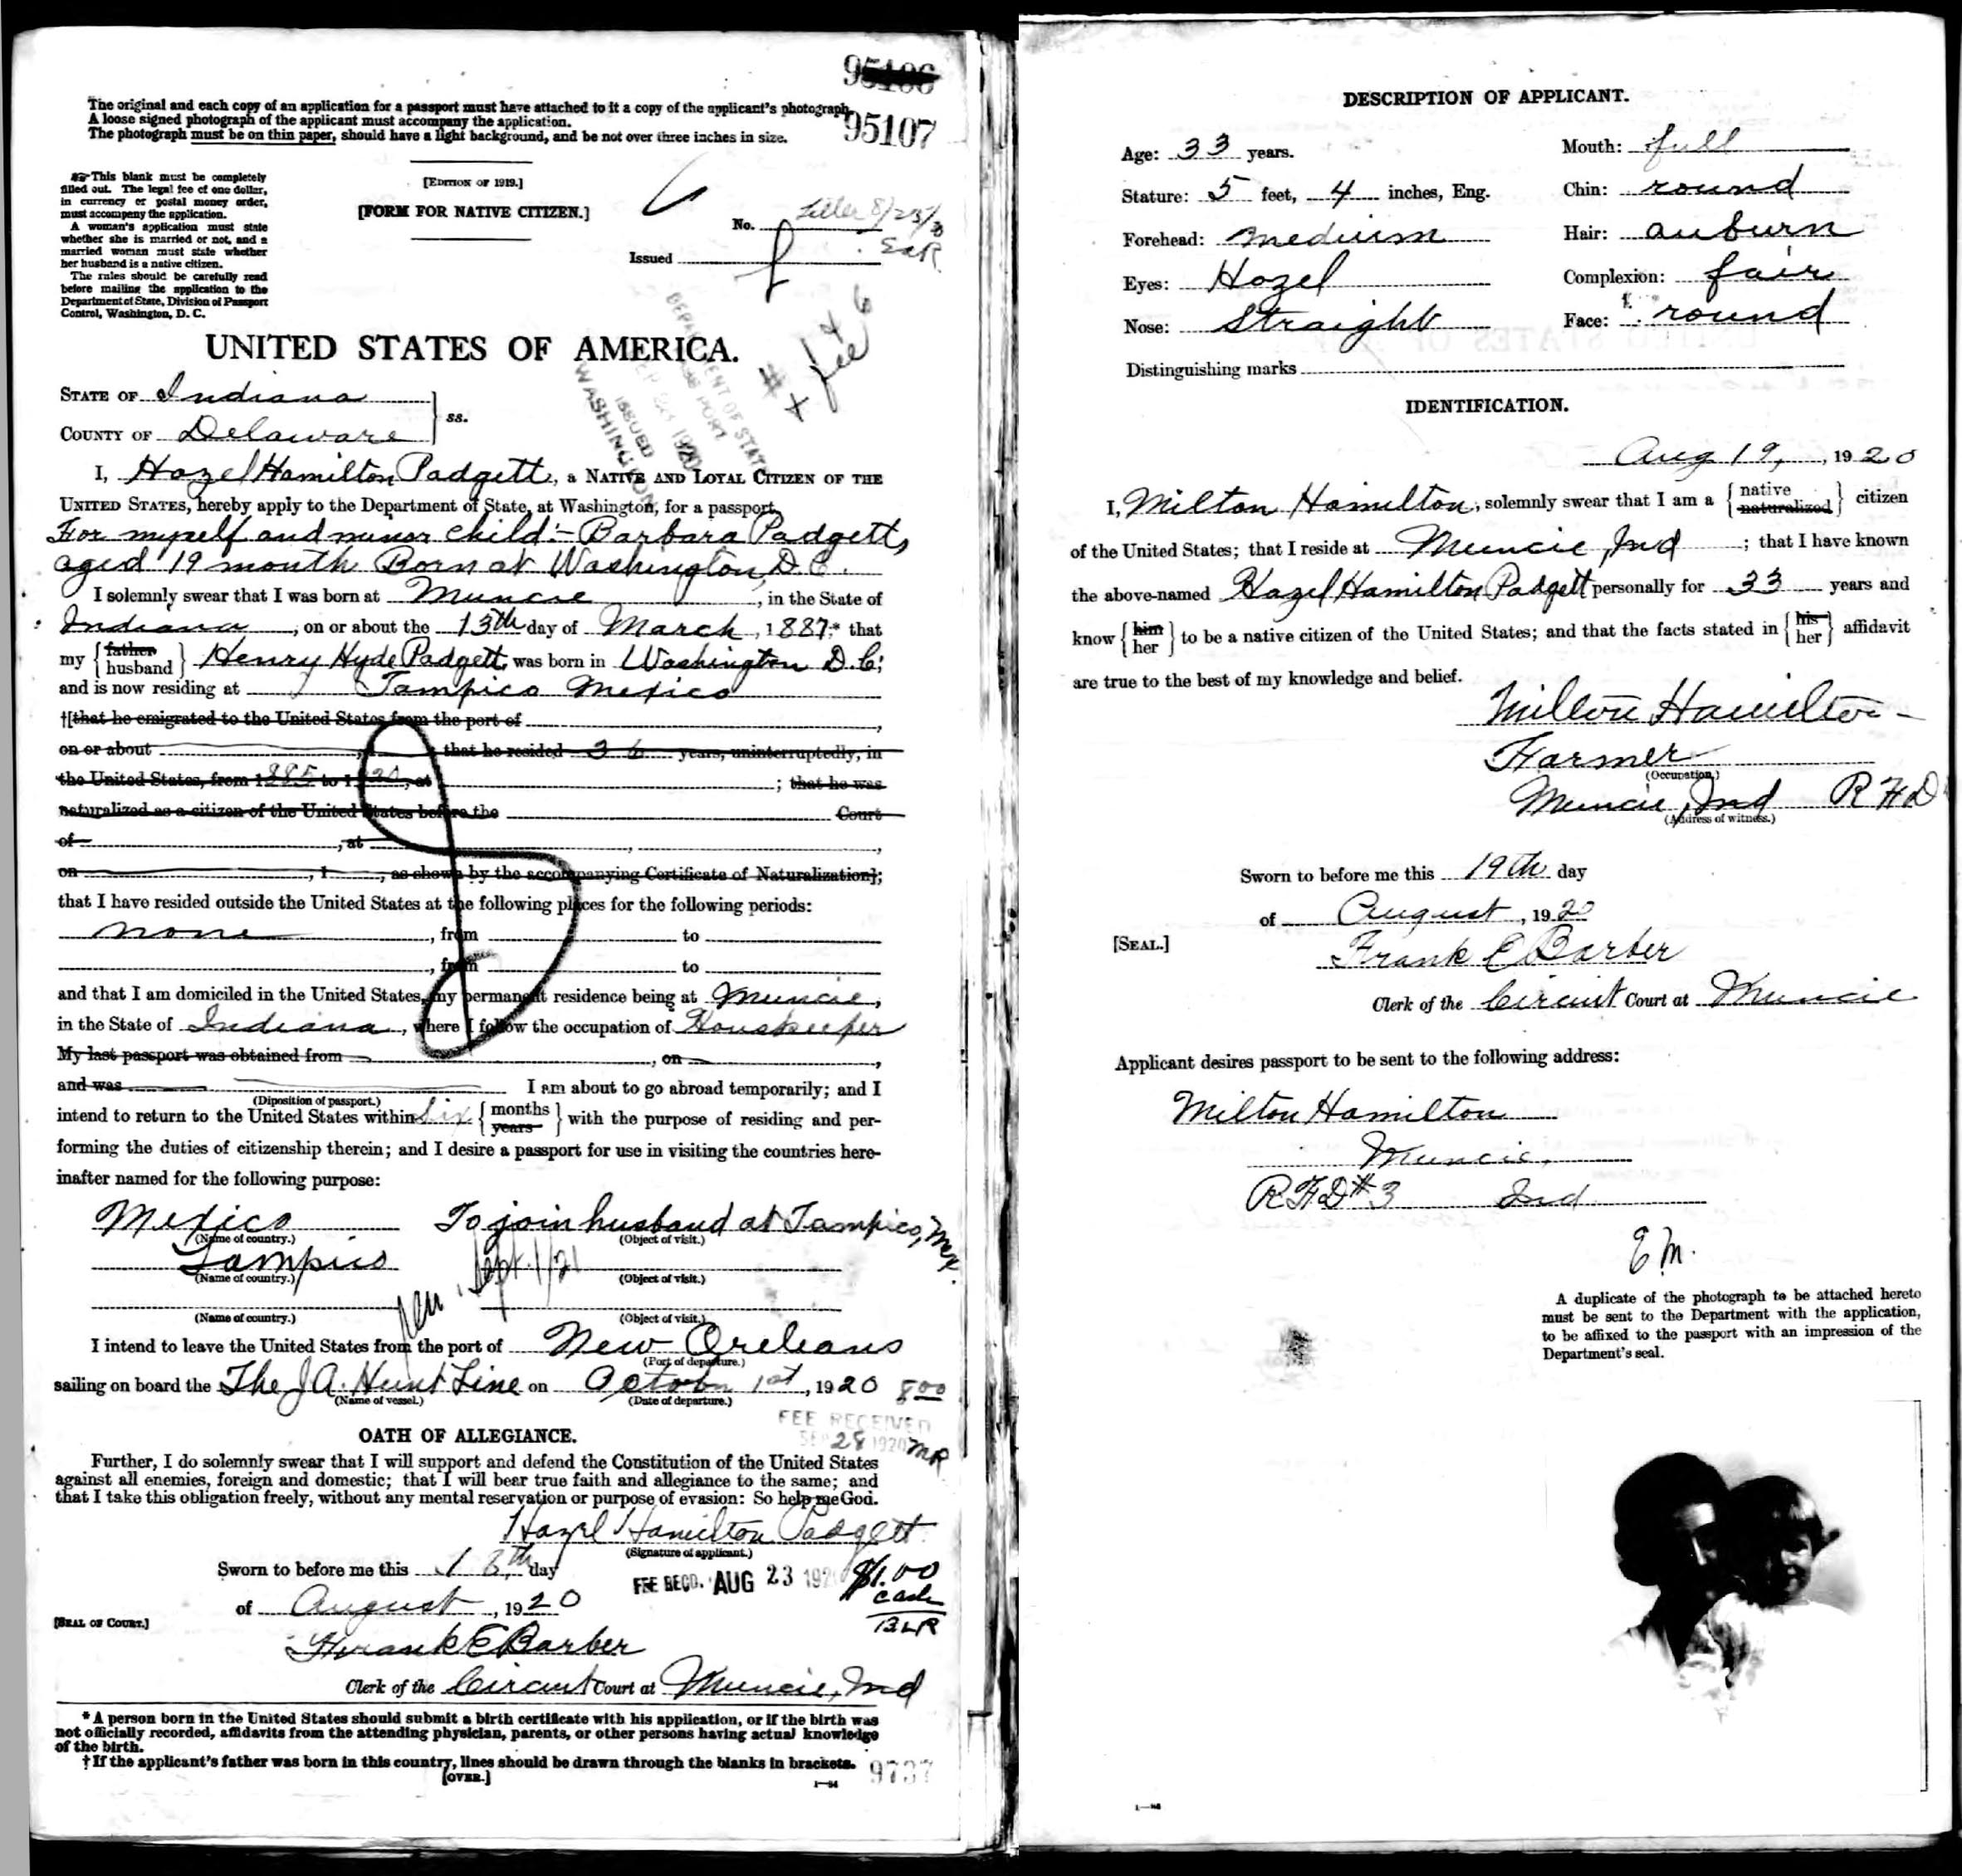 95106
95107
The original and each copy of an application for a passport must have attached to it a copy of the applicant's photograph.
A loose signed photograph of the applicant must accompany the application.
The photograph must be on thin paper, should have a light background, and be not over three inches in size.
This blank must be completely
filled out. The legal fee of one dollar,
in currency or postal money order,
must accompany the application.
A woman's application must state
whether she is married or not, and a
married woman must state whether
her husband is a native citizen.
The rules should be carefully read
before mailing the application to the
Department of State, Division of Passport
Control, Washington, D. C.
[EDITION OF 1919.]
[FORM FOR NATIVE CITIZEN.]
No.
Issued
1 & 6
fee
DEPARTMENT OF STATE
PASSPORT
ISSUED
1920
WASHINGTON
UNITED STATES OF AMERICA.
STATE OF Indiana
COUNTY OF Delaware
ss.
I, Hazel Hamilton Padgett, a NATIVE AND LOYAL CITIZEN OF THE
UNITED STATES, hereby apply to the Department of State, at Washington, for a passport
For myself and minor child:- Barbara Padgett,
aged 19 month Born at Washington D.C.
I solemnly swear that I was born at Muncie, in the State of
Indiana, on or about the 13th day of March, 1887;* that
my {father husband} Henry Hyde Padgett, was born in Washington D.C;
and is now residing at Tampico Mexico
†[that he emigrated to the United States from the port of ,
on or about , 1 that he resided 36 years, uninterruptedly, in
the United States, from 1885 to 1920, at ; that he was
naturalized as a citizen of the United States before the Court
of , at , ,
on , 1 , as shown by the accompanying Certificate of Naturalization];
that I have resided outside the United States at the following places for the following periods:
none , from to
, from to
and that I am domiciled in the United States, my permanent residence being at Muncie,
in the State of Indiana, where I follow the occupation of Houskeeper
My last passport was obtained from , on ,
and was I am about to go abroad temporarily; and I
(Diposition of passport.)
intend to return to the United States within six {months years} with the purpose of residing and per-
forming the duties of citizenship therein; and I desire a passport for use in visiting the countries here-
inafter named for the following purpose:
Mexico To join husband at Tampico, Mex.
(Name of country.) (Object of visit.)
Tampico
(Name of country.) (Object of visit.)
Sept. 1/21
(Name of country.) (Object of visit.)
I intend to leave the United States from the port of New Orleans
(Port of departure.)
sailing on board the The J.A. Hunt Line on October 1st, 1920 8 00
(Name of vessel.) (Date of departure.)
FEE RECEIVED
SEP 28 1920 MR
OATH OF ALLEGIANCE.
Further, I do solemnly swear that I will support and defend the Constitution of the United States
against all enemies, foreign and domestic; that I will bear true faith and allegiance to the same; and
that I take this obligation freely, without any mental reservation or purpose of evasion: So help me God.
Hazel Hamilton Padgett
(Signature of applicant.)
Sworn to before me this 18th day
FEE RECD. AUG 23 192 $1.00
cash
BLR
of August, 1920
[SEAL OF COURT.]
Frank E Barber
Clerk of the Circuit Court at Muncie, Ind
* A person born in the United States should submit a birth certificate with his application, or if the birth was
not officially recorded, affidavits from the attending physician, parents, or other persons having actual knowledge
of the birth.
† If the applicant's father was born in this country, lines should be drawn through the blanks in brackets.
[OVER.]
9737
DESCRIPTION OF APPLICANT.
Age: 33 years. Mouth: full
Stature: 5 feet, 4 inches, Eng. Chin: round
Forehead: medium Hair: auburn
Eyes: Hazel Complexion: fair
Nose: Straight Face: round
Distinguishing marks
IDENTIFICATION.
Aug 19, , 1920
I, Milton Hamilton, solemnly swear that I am a {native naturalized} citizen
of the United States; that I reside at Muncie, Ind ; that I have known
the above-named Hazel Hamilton Padgett personally for 33 years and
know {him her} to be a native citizen of the United States; and that the facts stated in {his her} affidavit
are true to the best of my knowledge and belief.
Milton Hamilton
Farmer
(Occupation.)
Muncie, Ind R F D
(Address of witness.)
Sworn to before me this 19th day
of August, 1920
[SEAL.]
Frank E Barber
Clerk of the Circuit Court at Muncie
Applicant desires passport to be sent to the following address:
Milton Hamilton
Muncie,
R.F.D #3 Ind
E M.
A duplicate of the photograph to be attached hereto
must be sent to the Department with the application,
to be affixed to the passport with an impression of the
Department's seal.